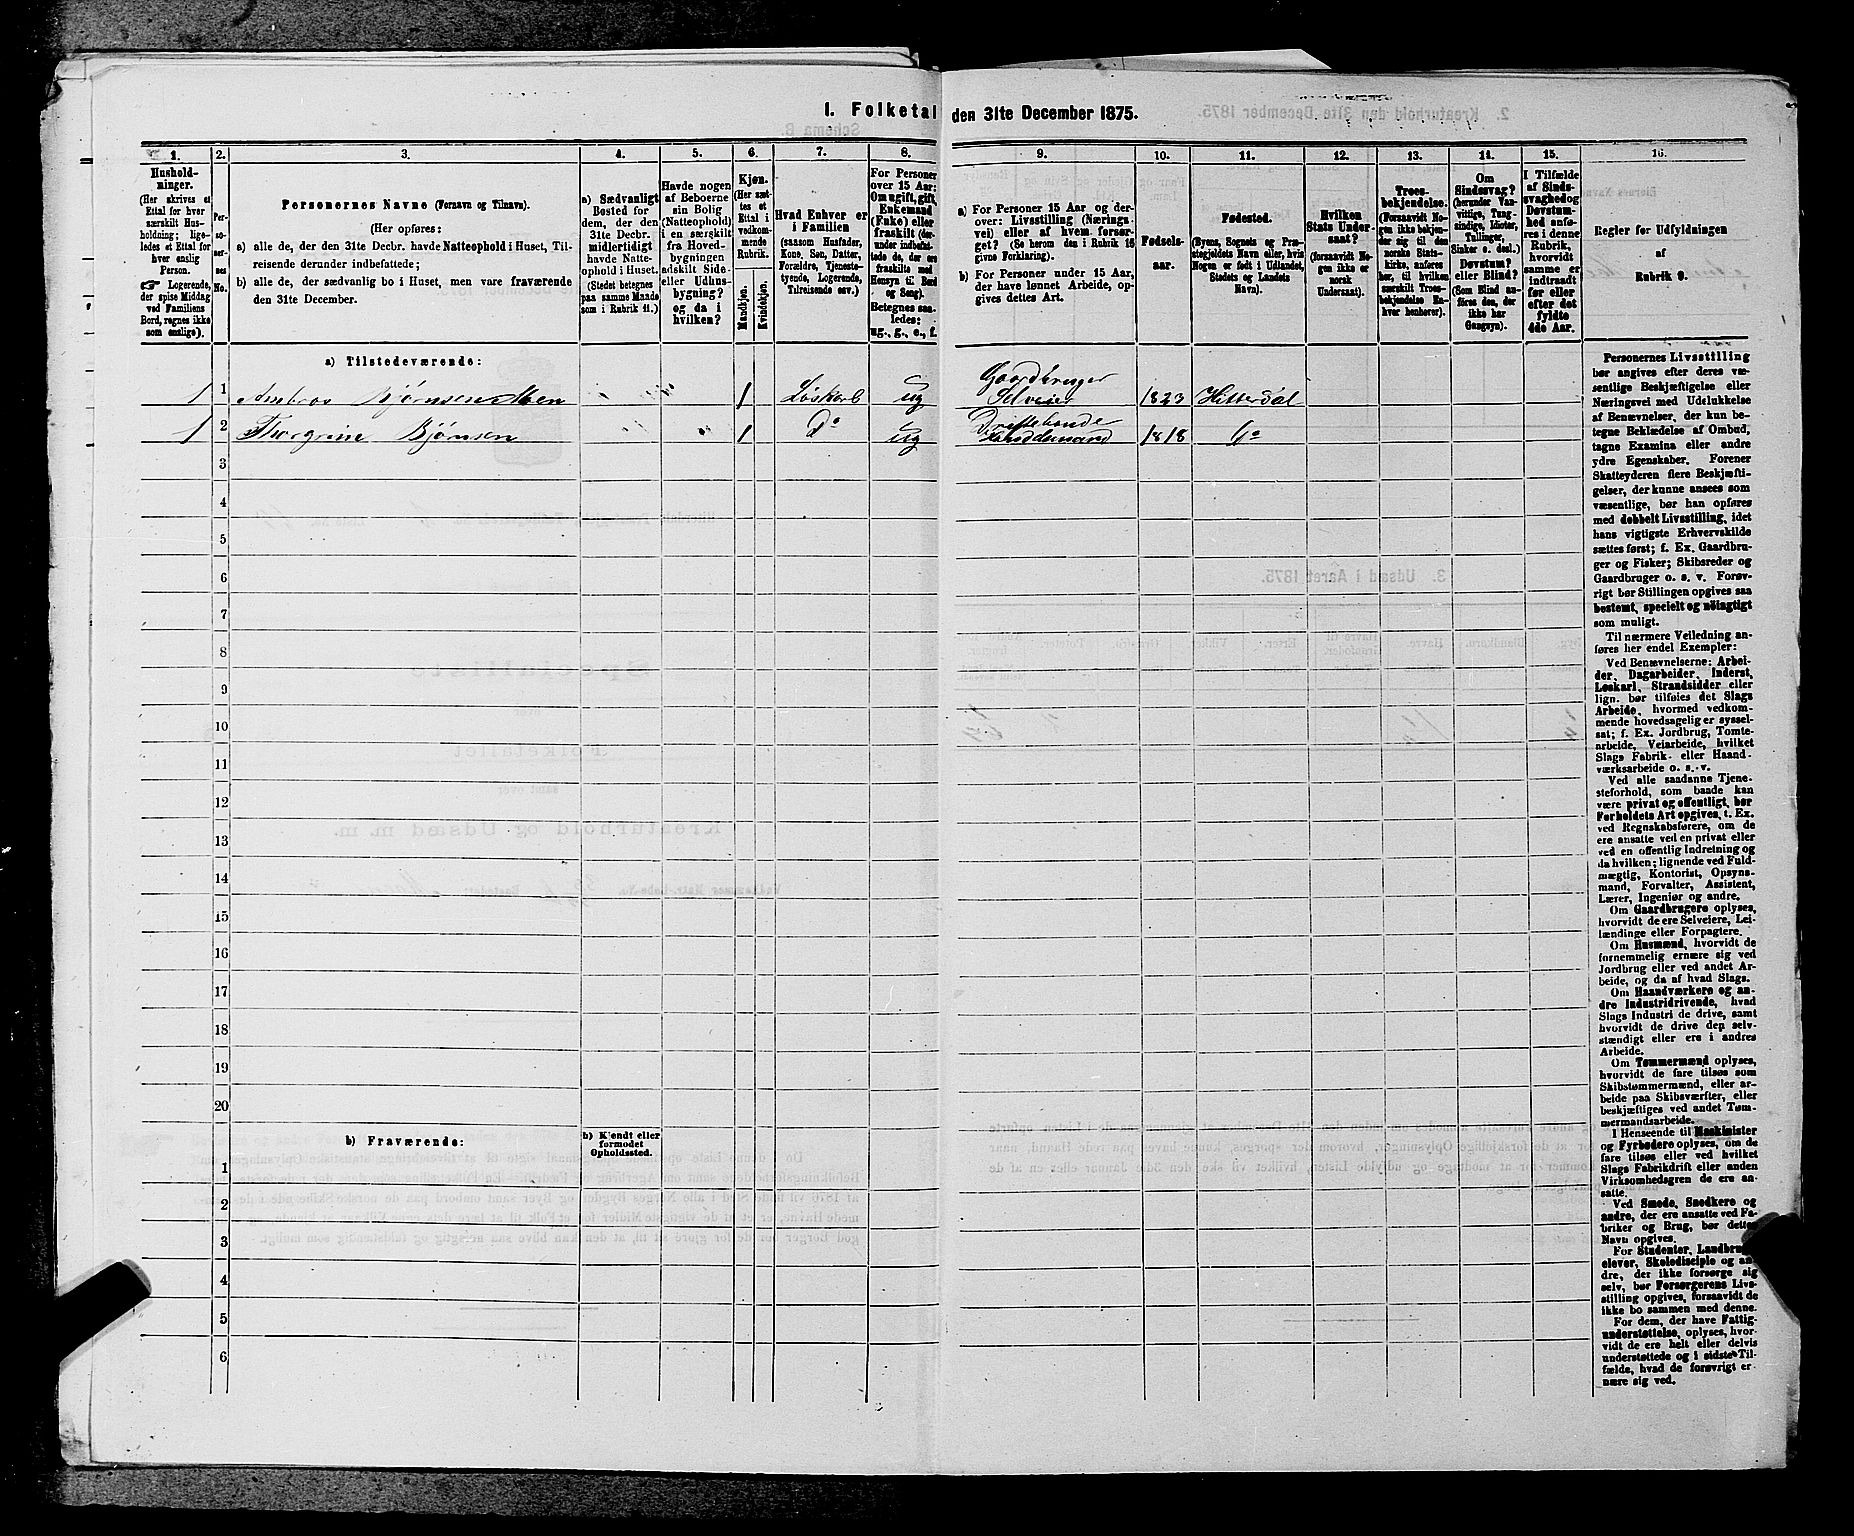 I. Folketal den 31te December 1875.
1.
Hushold-
ninger.
(Her skrives et
Ettal for hver
særskilt Hus-
holdning; lige-
ledes et Ettal for
hver enslig
Person.
Logerende,
der spise Middag
ved Familiens
Bord, regnes ikke
som enslige).
2.
Per-
soner-
nes
No.
3.
Personernes Navne (Fornavn og Tilnavn).
(Her opføres:
a) alle de, der den 31te Decbr. havde Natteophold i Huset, Til-
reisende derunder indbefattede;
b) alle de, der sædvanlig bo i Huset, men vare fraværende
den 31te December.
4.
a) Sædvanligt
Bosted for
dem, der den
31te Decbr.
midlertidigt
havde Natte-
ophold i Huset.
(Stedet betegnes
paa samme Maade
som i Rubrik 11.)
5.
Havde nogen
af Beboerne
sin Bolig
(Natteophold)
i en særskilt
fra Hoved-
bygningen
adskilt Side-
eller Udhus-
bygning?
og da i
hvilken?
6.
Kjøn.
(Her sæt-
tes et
Ettal i
vedkom-
mende
Rubrik.
Mandkjøn.
Kvindekjøn.
7.
Hvad Enhver er
i Familien
(saasom Husfader,
Kone, Søn, Datter,
Forældre, Tjeneste-
tyende, Logerende,
Tilreisende osv.)
8.
For Personer
over 15 Aar:
Om ugift, gift,
Enkemand
(Enke) eller
fraskilt (der-
under indbefat-
tede de, der ere
fraskilte med
Hensyn til Bord
og Seng).
Betegnes saa-
ledes:
ug., g., e., f.
9.
a) For Personer 15 Aar og der-
over: Livsstilling (Nærings-
vei) eller af hvem forsør-
get? (Se herom den i Rubrik 15
givne Forklaring).
b) For Personer under 15 Aar,
der have lønnet Arbeide, op-
gives dettes Art.
10.
Fødsels-
aar.
11.
Fødested.
(Byens, Sognets og Præ-
stegjeldets Navn eller, hvis
Nogen er født i Udlandet,
Stedets og Landets
Navn).
12.
Hvilken
Stats Under-
saat?
(forsaavidt No-
gen ikke er
norsk
Undersaat).
13.
Troes-
bekjendelse.
(Forsaavidt No-
gen ikke bekjen-
der sig til den
norske Stats-
kirke, anføres
her, til hvilken
særskilt Troes-
bekjendelse En-
hver henhører).
14.
Om
Sindssvag?
(herunder Van-
vittige, Tung-
sindige, Idioter,
Tullinger,
Sinker o. desl.)
Døvstum?
eller Blind?
(Som Blind an-
føres den, der
ikke har
Gangsyn).
15.
I Tilfælde
af Sinds-
svaghed og
Døvstum-
hed anfø-
res i denne
Rubrik,
hvorvidt
samme er
indtraadt
før eller
efter det
fyldte
4de Aar.
16.
Regler for Udfyldningen
af
Rubrik 9.
a) Tilstedeværende:
1 1 Ambros Bjørnsen Moen 1 Løskarl ug Gaardbruger Selveier 1823 Hitterdal
1 2 Thorgrim Bjørnsen 1 Do ug Driftebonde 1818 Do
3
4
5
6
7
8
9
10
11
12
13
14
15
16
17
18
19
20
b) Fraværende:
b) Kjendt eller
formodet
Opholdssted.
1
2
3
4
5
6
Personernes Livsstilling
bør angives efter deres væ-
sentlige Beskjæftigelse eller
Næringsvei med Udelukkelse
af Benævnelser, der kun be-
tegne Beklædelse af Ombud,
tagne Examina eller andre
ydre Egenskaber. Forener
Skatteyderen flere Beskjæfti-
gelser, der kunne ansees som
væsentlige, bør han opføres
med dobbelt Livsstilling, idet
hans vigtigste Erhvervskilde
sættes først; f. Ex. Gaardbru-
ger og Fisker; Skibsreder og
Gaardbruger o. s. v. Forøv-
rigt bør Stillingen opgives saa
bestemt, specielt og nöiagtigt
som muligt.
Til nærmere Veiledning an-
føres her endel Exempler:
Ved Benævnelserne: Arbei-
der, Dagarbeider, Inderst,
Løskarl, Strandsidder eller
lign. bør tilføies det Slags
Arbeide, hvormed vedkom-
mende hovedsagelig er syssel-
sat; f. Ex. Jordbrug, Tomte-
arbeide, Veiarbeide, hvilket
Slags Fabrik- eller Haand-
værksarbeide o. s. v.
Ved alle saadanne Tjene-
steforhold, som baade kan
være privat og offentligt, bør
Forholdets Art opgives, t. Ex.
ved Regnskabsførere, om de
ere ansatte ved en privat eller
ved en offentlig Indretning og
da hvilken; lignende ved Fuld-
mægtig, Kontorist, Opsyns-
mand, Forvalter, Assistent,
Lærer, Ingeniør og andre.
Om Gaardbrugere oplyses,
hvorvidt de ere Selveiere, Lei-
lændinge eller Forpagtere.
Om Husmænd, hvorvidt de
fornemmelig ernære sig ved
Jordbrug eller ved andet Ar-
beide, og da af hvad Slags.
Om Haandværkere og an-
dre Industridrivende, hvad
Slags Industri de drive, samt
hvorvidt de drive den selv-
stændigt eller ere i andres
Arbeide.
Om Tømmermænd oplyses,
hvorvidt de fare tilsøs som
Skibstømmermænd, eller ar-
beide paa Skibsværfter, eller
beskjæftiges ved andet Tøm-
mermandsarbeide.
I Henseende til Maskinister
og Fyrbødere oplyses, om de
fare tilsøs eller ved hvilket
Slags Fabrikdrift eller anden
Virksomhedsgren de ere an-
satte.
Ved Smede, Snedkere og
andre, der ere ansatte ved Fa-
briker og Brug, bør dettes
Navn opgives.
For Studenter, Landbrugs-
elever, Skoledisciple og an-
dre, der ikke forsørge sig
selv, bør Forsørgerens Livs-
stilling opgives, forsaavidt de
ikke bo sammen med denne.
For dem, der have Fattig-
understøttelse, oplyses, hvor-
vidt de ere helt eller delvis
understøttede og i sidste Til-
fælde, hvad de forøvrigt er-
nære sig ved.